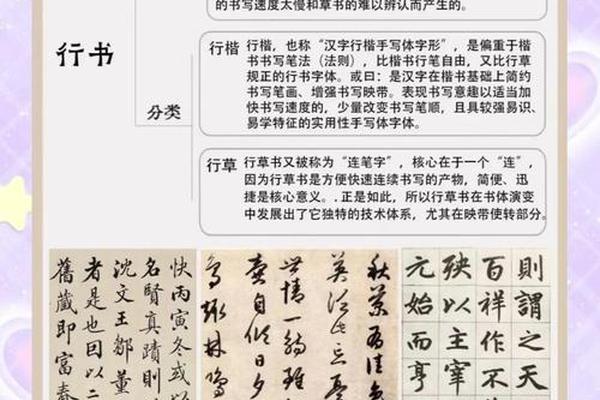 的书写速度太慢和草书的难以辨认而产生的。
行书
分类
行楷
行楷，也称“汉字行楷手写体字形”，是偏重于楷
书书写笔法（法则），比楷书行笔自由，又比行草
规正的行书字体。或曰：是汉字在楷书基础上简约
书写笔画、增强书写映带。表现书写意趣以适当加
快书写速度的，少量改变书写笔顺，且具较强易识、
易学特征的实用性手写体字体。
行草
行草书又被称为“连笔字”，核心在于一个“连”，
因为行草书是方便快速连续书写的产物，简便、迅
捷是核心意义。.正是如此，所以行草在书体演变
中发展出了它独特的技术体系，尤其在映带使转部分。
快丙寅冬或
名賢真蹟則
沈文王鄒董
者是也因以二
舊藏即富春
秋菊有佳色
英泛此忘憂
世情一觴雖
壺自傾日夕
鳥趨林鳴
則謂之天
百祥作不
殃以主宰
元始而亨